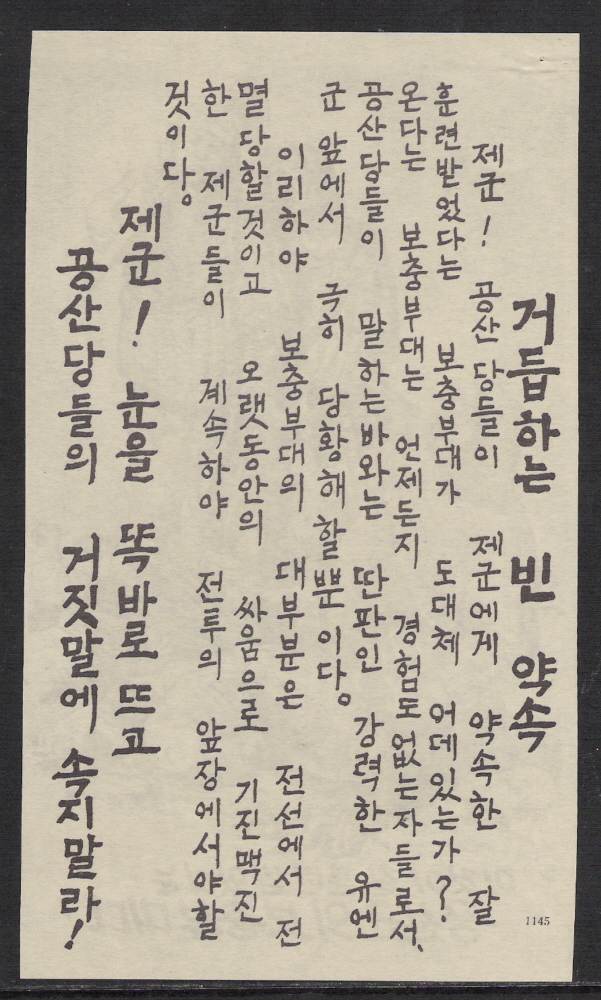 거듭하는 빈 약속
제군! 공산 당들이 제군에게 약속한 잘
훈련받었다는 보충부대가 도대체 어데있는가?
온다는 보충부대는 언제든지 경험도없는자들로서,
공산당들이 말하는바와는 딴판인 강력한 유엔
군 앞에서 극히 당황해할뿐이다。
이리하야 보충부대의 대부분은 전선에서 전
멸당할것이고 오랫동안의 싸움으로 기진맥진
한 제군들이 계속하야 전투의 앞장에서야할
것이다。
제군! 눈을 똑바로 뜨고
공산당들의 거짓말에 속지말라!
1145